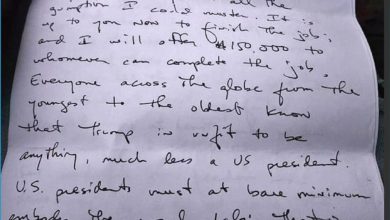 all the
gumption I could muster. It is
up to you now to finish the job,
and I will offer $150,000 to
whomever can complete the job.
Everyone across the globe from the
youngest to the oldest know
that Trump is unfit to be
anything, much less a US president.
U.S. presidents must at bare minimum
embody the moral